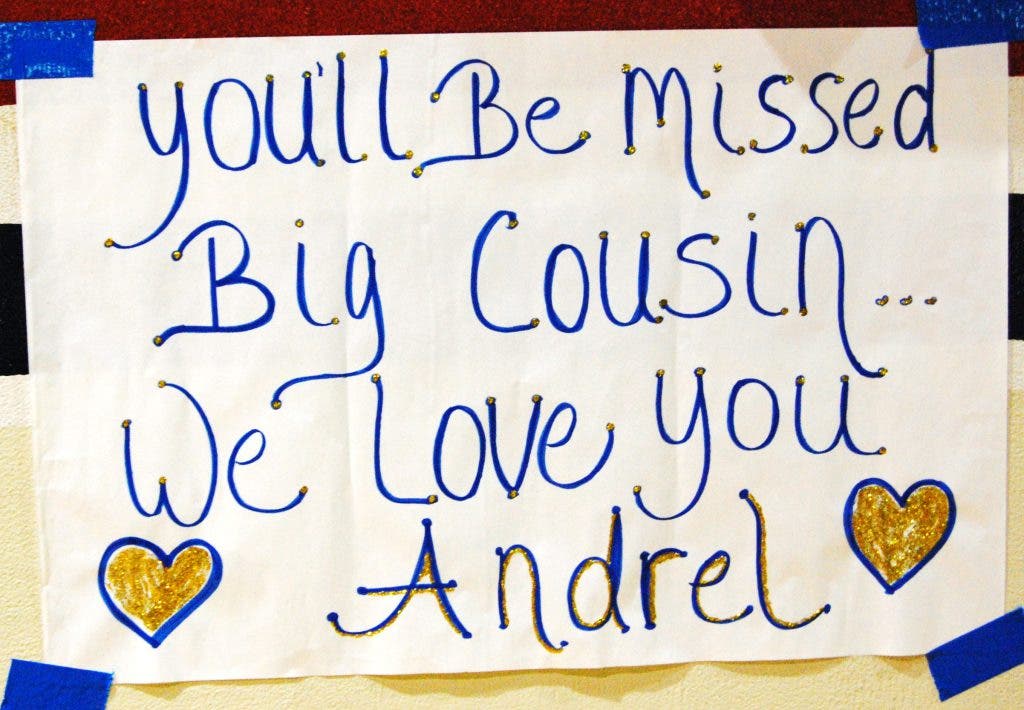 you'll Be Missed
Big Cousin...
We Love you
Andrel